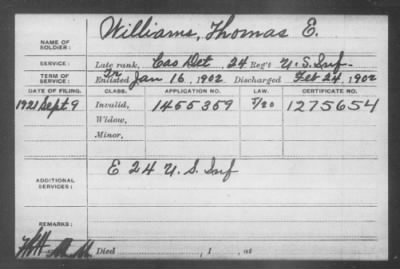 NAME OF SOLDIER: Williams, Thomas E.
SERVICE: Late rank, Cas Det 24 Reg't U.S. Inf
TERM OF SERVICE: Enlisted Jan 16, 1902 Discharged Feb 24, 1902
DATE OF FILING. CLASS. APPLICATION NO. LAW. CERTIFICATE NO.
1921 Sept 9 Invalid, 1455359 1275654
Widow,
Minor,
ADDITIONAL SERVICES: E 24 U.S. Inf
REMARKS:
Died , 1 , at